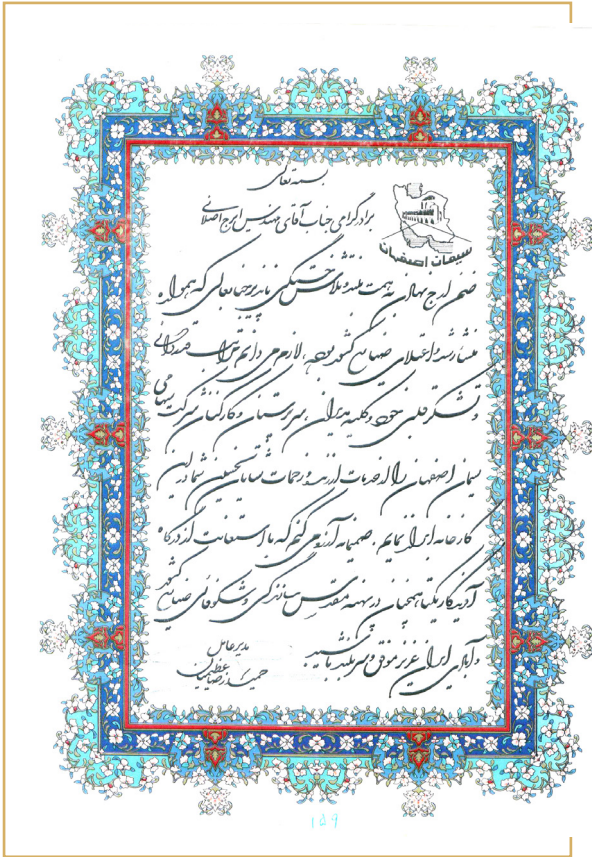 بسمه تعالی
برادر گرامی جناب آقای مهندس ایرج اصلانی
سیمان اصفهان
ضمن ارج نهادن به همت بلند و تلاش خستگی ناپذیر جنابعالی که همواره
منشأ رشد و اعتلای صنایع کشور بوده، لازم می دانم مراتب قدردانی
و تشکر قلبی خود و کلیه مدیران، سرپرستان و کارکنان شرکت سهامی
سیمان اصفهان را از خدمات ارزنده و زحمات شایان تحسین شما در این
کارخانه ابراز نمایم. صمیمانه آرزو می کنم که با استعانت از درگاه
آفریدگار یکتا همچنان در پهنه مقدس سازندگی و شکوفائی صنایع کشور
و آبادی ایران عزیز موفق و سربلند باشید.
مدیر عامل
۱۵۹